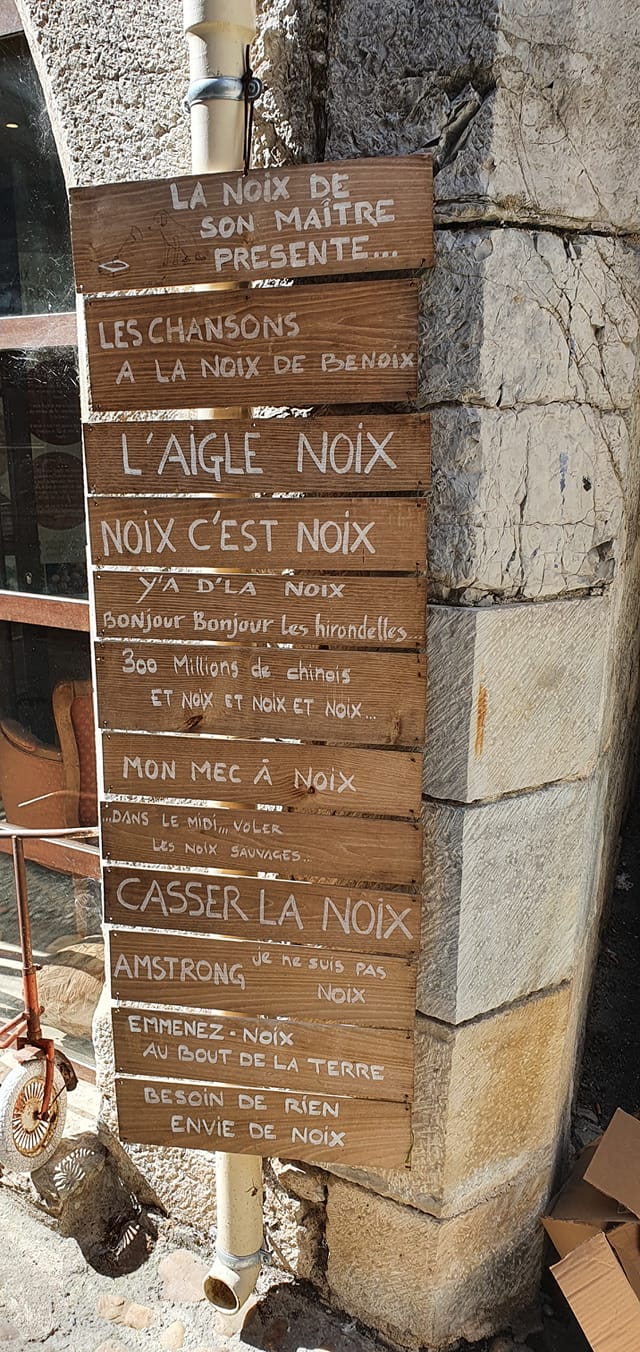 LA NOIX DE
SON MAÎTRE
PRESENTE...
LES CHANSONS
A LA NOIX DE BENOIX
L'AIGLE NOIX
NOIX C'EST NOIX
Y'A D'LA NOIX
BONJOUR BONJOUR LES hirondelles...
300 Millions de chinois
ET NOIX ET NOIX ET NOIX...
MON MEC À NOIX
...DANS LE MIDI,,, VOLER
LES NOIX SAUVAGES...
CASSER LA NOIX
AMSTRONG je ne suis pas
NOIX
EMMENEZ-NOIX
AU BOUT DE LA TERRE
BESOIN DE RIEN
ENVIE DE NOIX